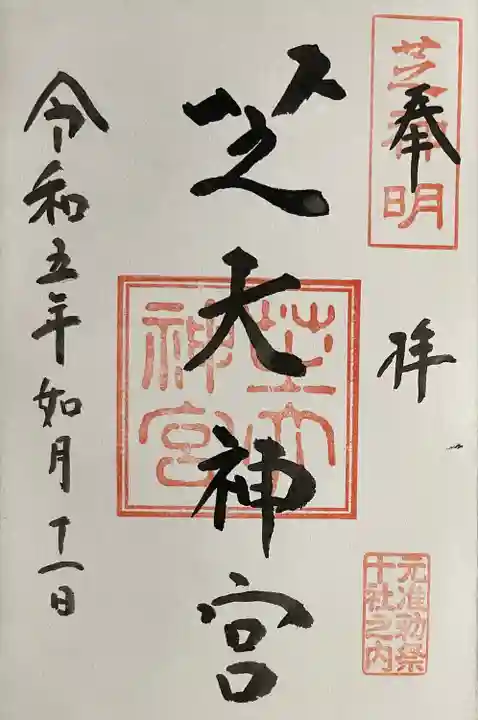 奉拝
芝神明
元准勅祭
十社之内
芝大神宮
芝大神宮
令和五年如月十一日